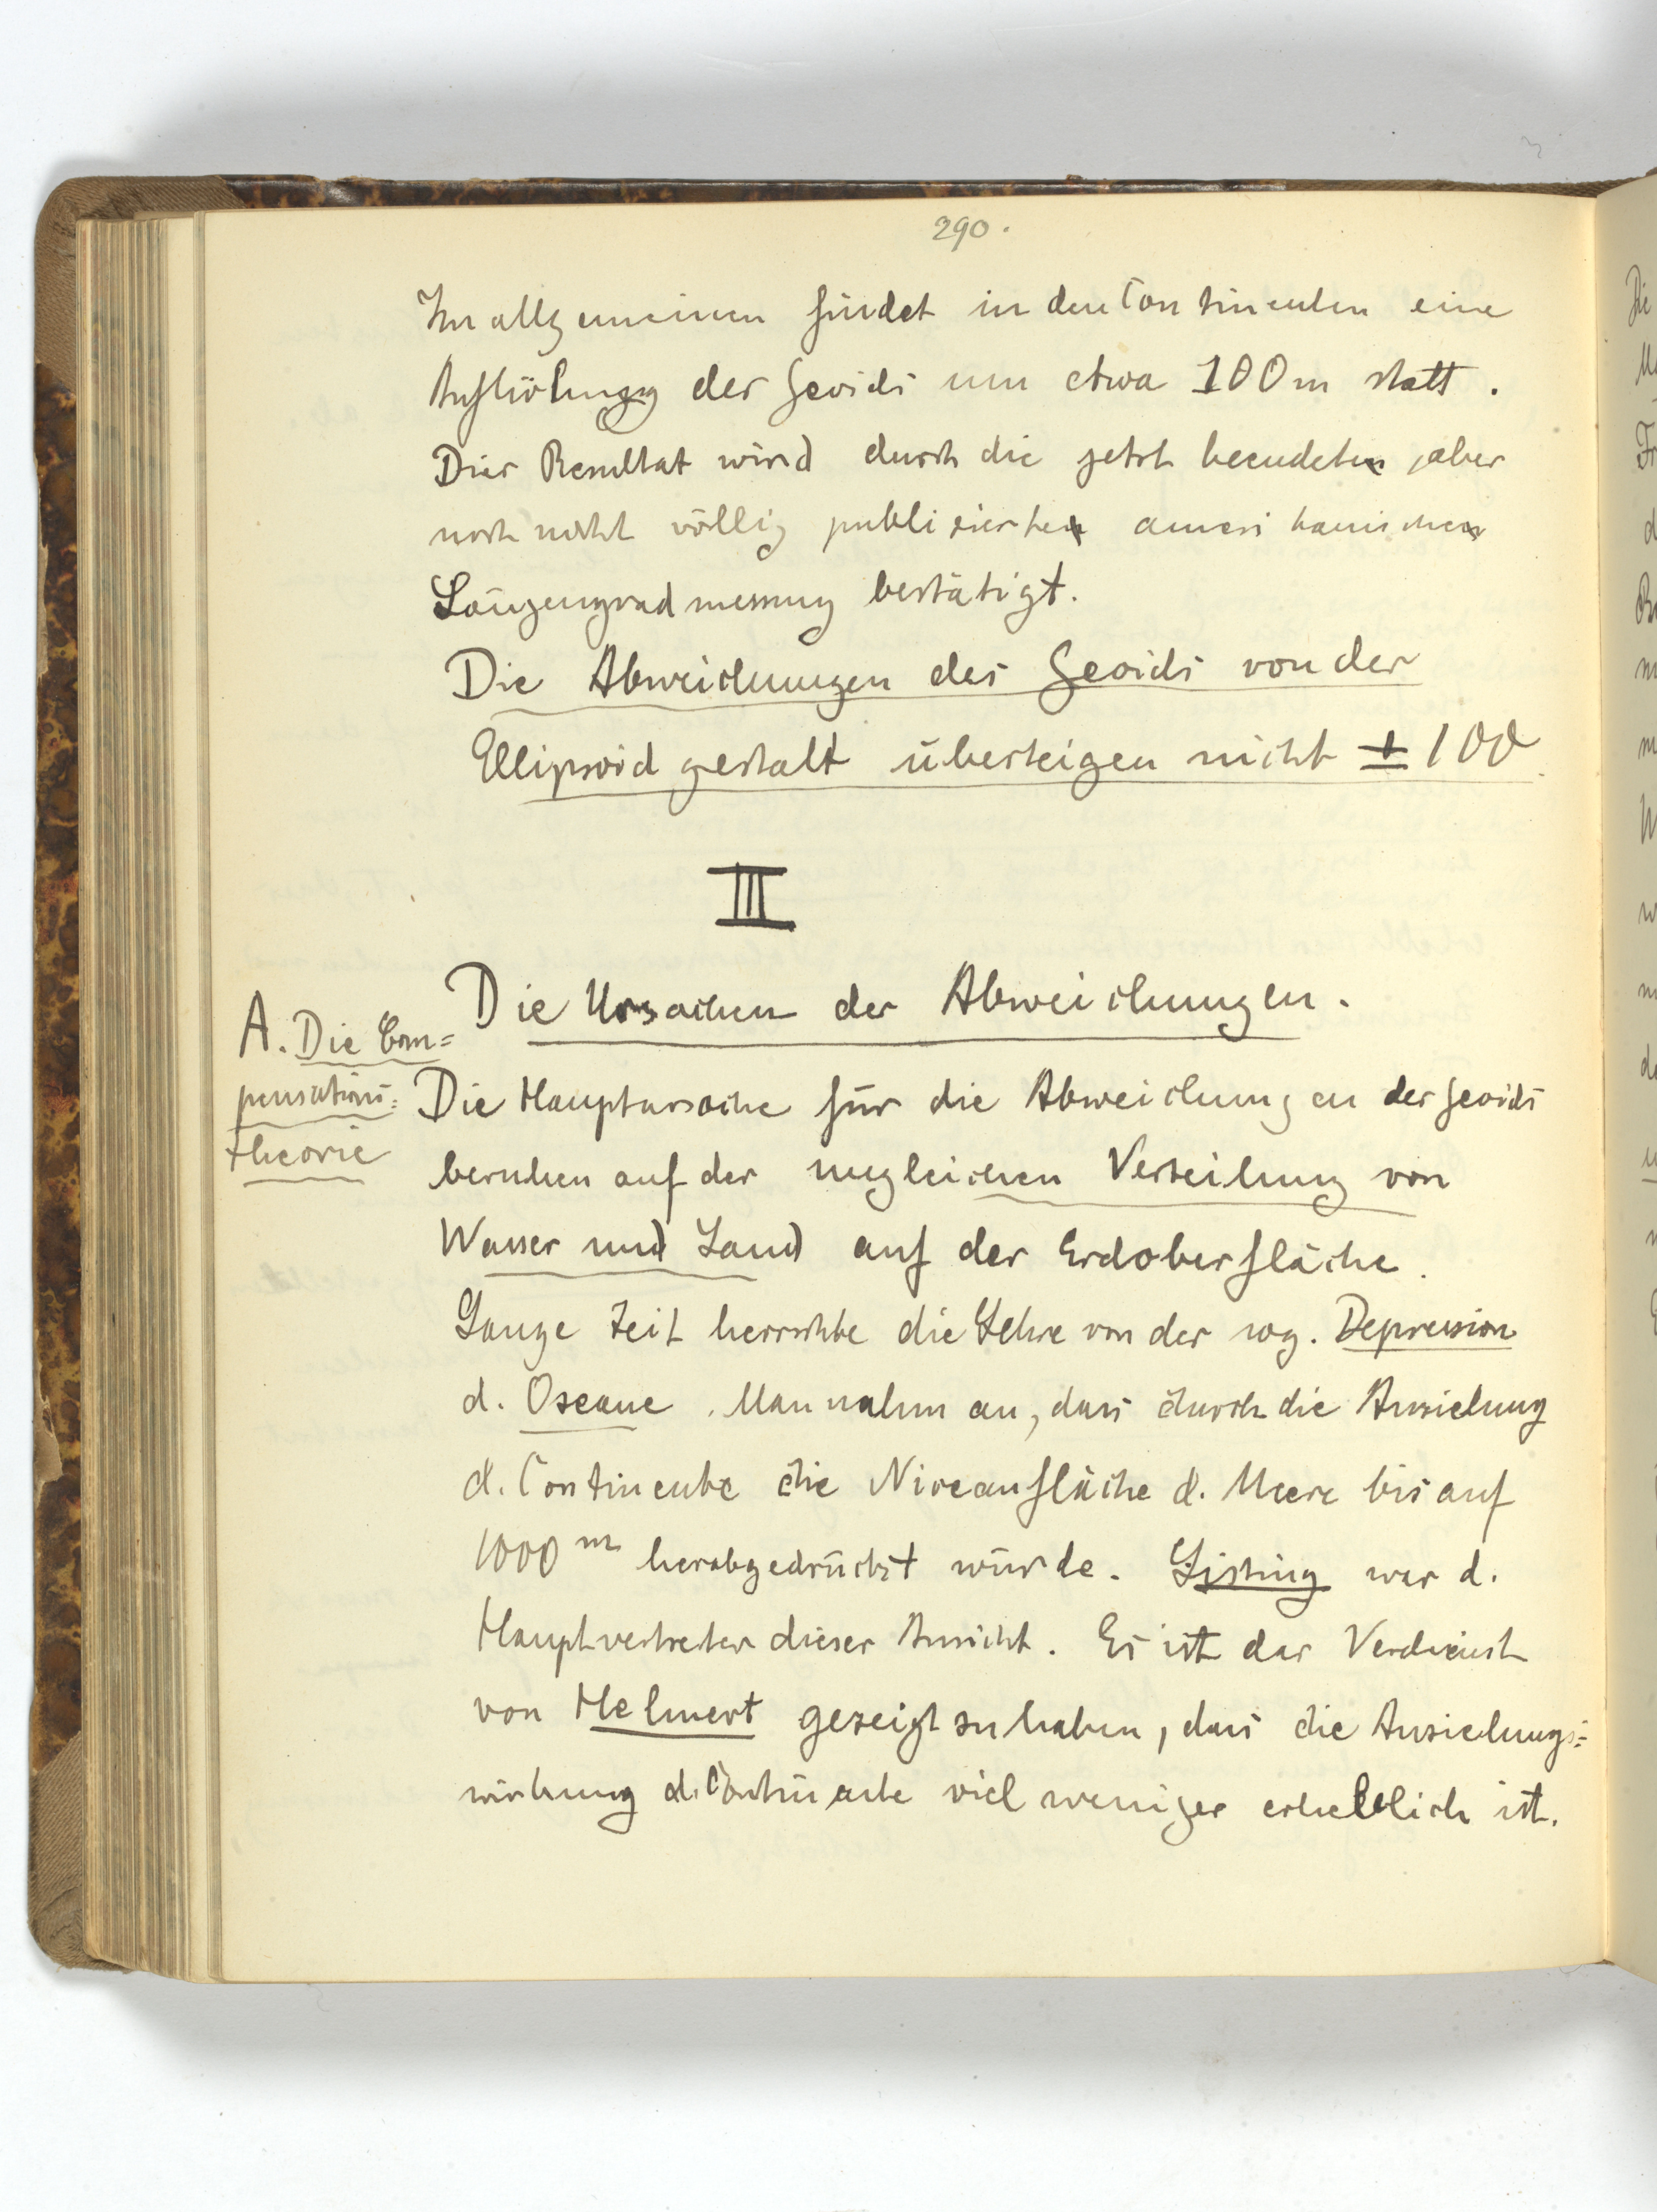 290.
Im allgemeinen findet in den Continenten eine
Aufwölbung des Geoids um etwa 100 m statt.
Dies Resultat wird durch die jetzt beendete, aber
noch nicht völlig publizierte amerikanische
Längengradmessung bestätigt.
Die Abweichungen des Geoids von der
Ellipsoidgestalt übersteigen nicht ± 100
III
Die Ursachen der Abweichungen.
A. Die Com=
pensations=
theorie
Die Hauptursache für die Abweichungen des Geoids
beruhen auf der ungleichen Verteilung von
Wasser und Land auf der Erdoberfläche.
Lange Zeit herrschte die Lehre von der sog. Depression
d. Oseane. Man nahm an, dass durch die Anziehung
d. Continente die Niveaufläche d. Meere bis auf
1000 m herabgedrückt würde. Listing war d.
Hauptvertreter dieser Ansicht. Es ist das Verdienst
von Helmert gezeigt zu haben, dass die Anziehungs=
wirkung d. Continente viel weniger erheblich ist.